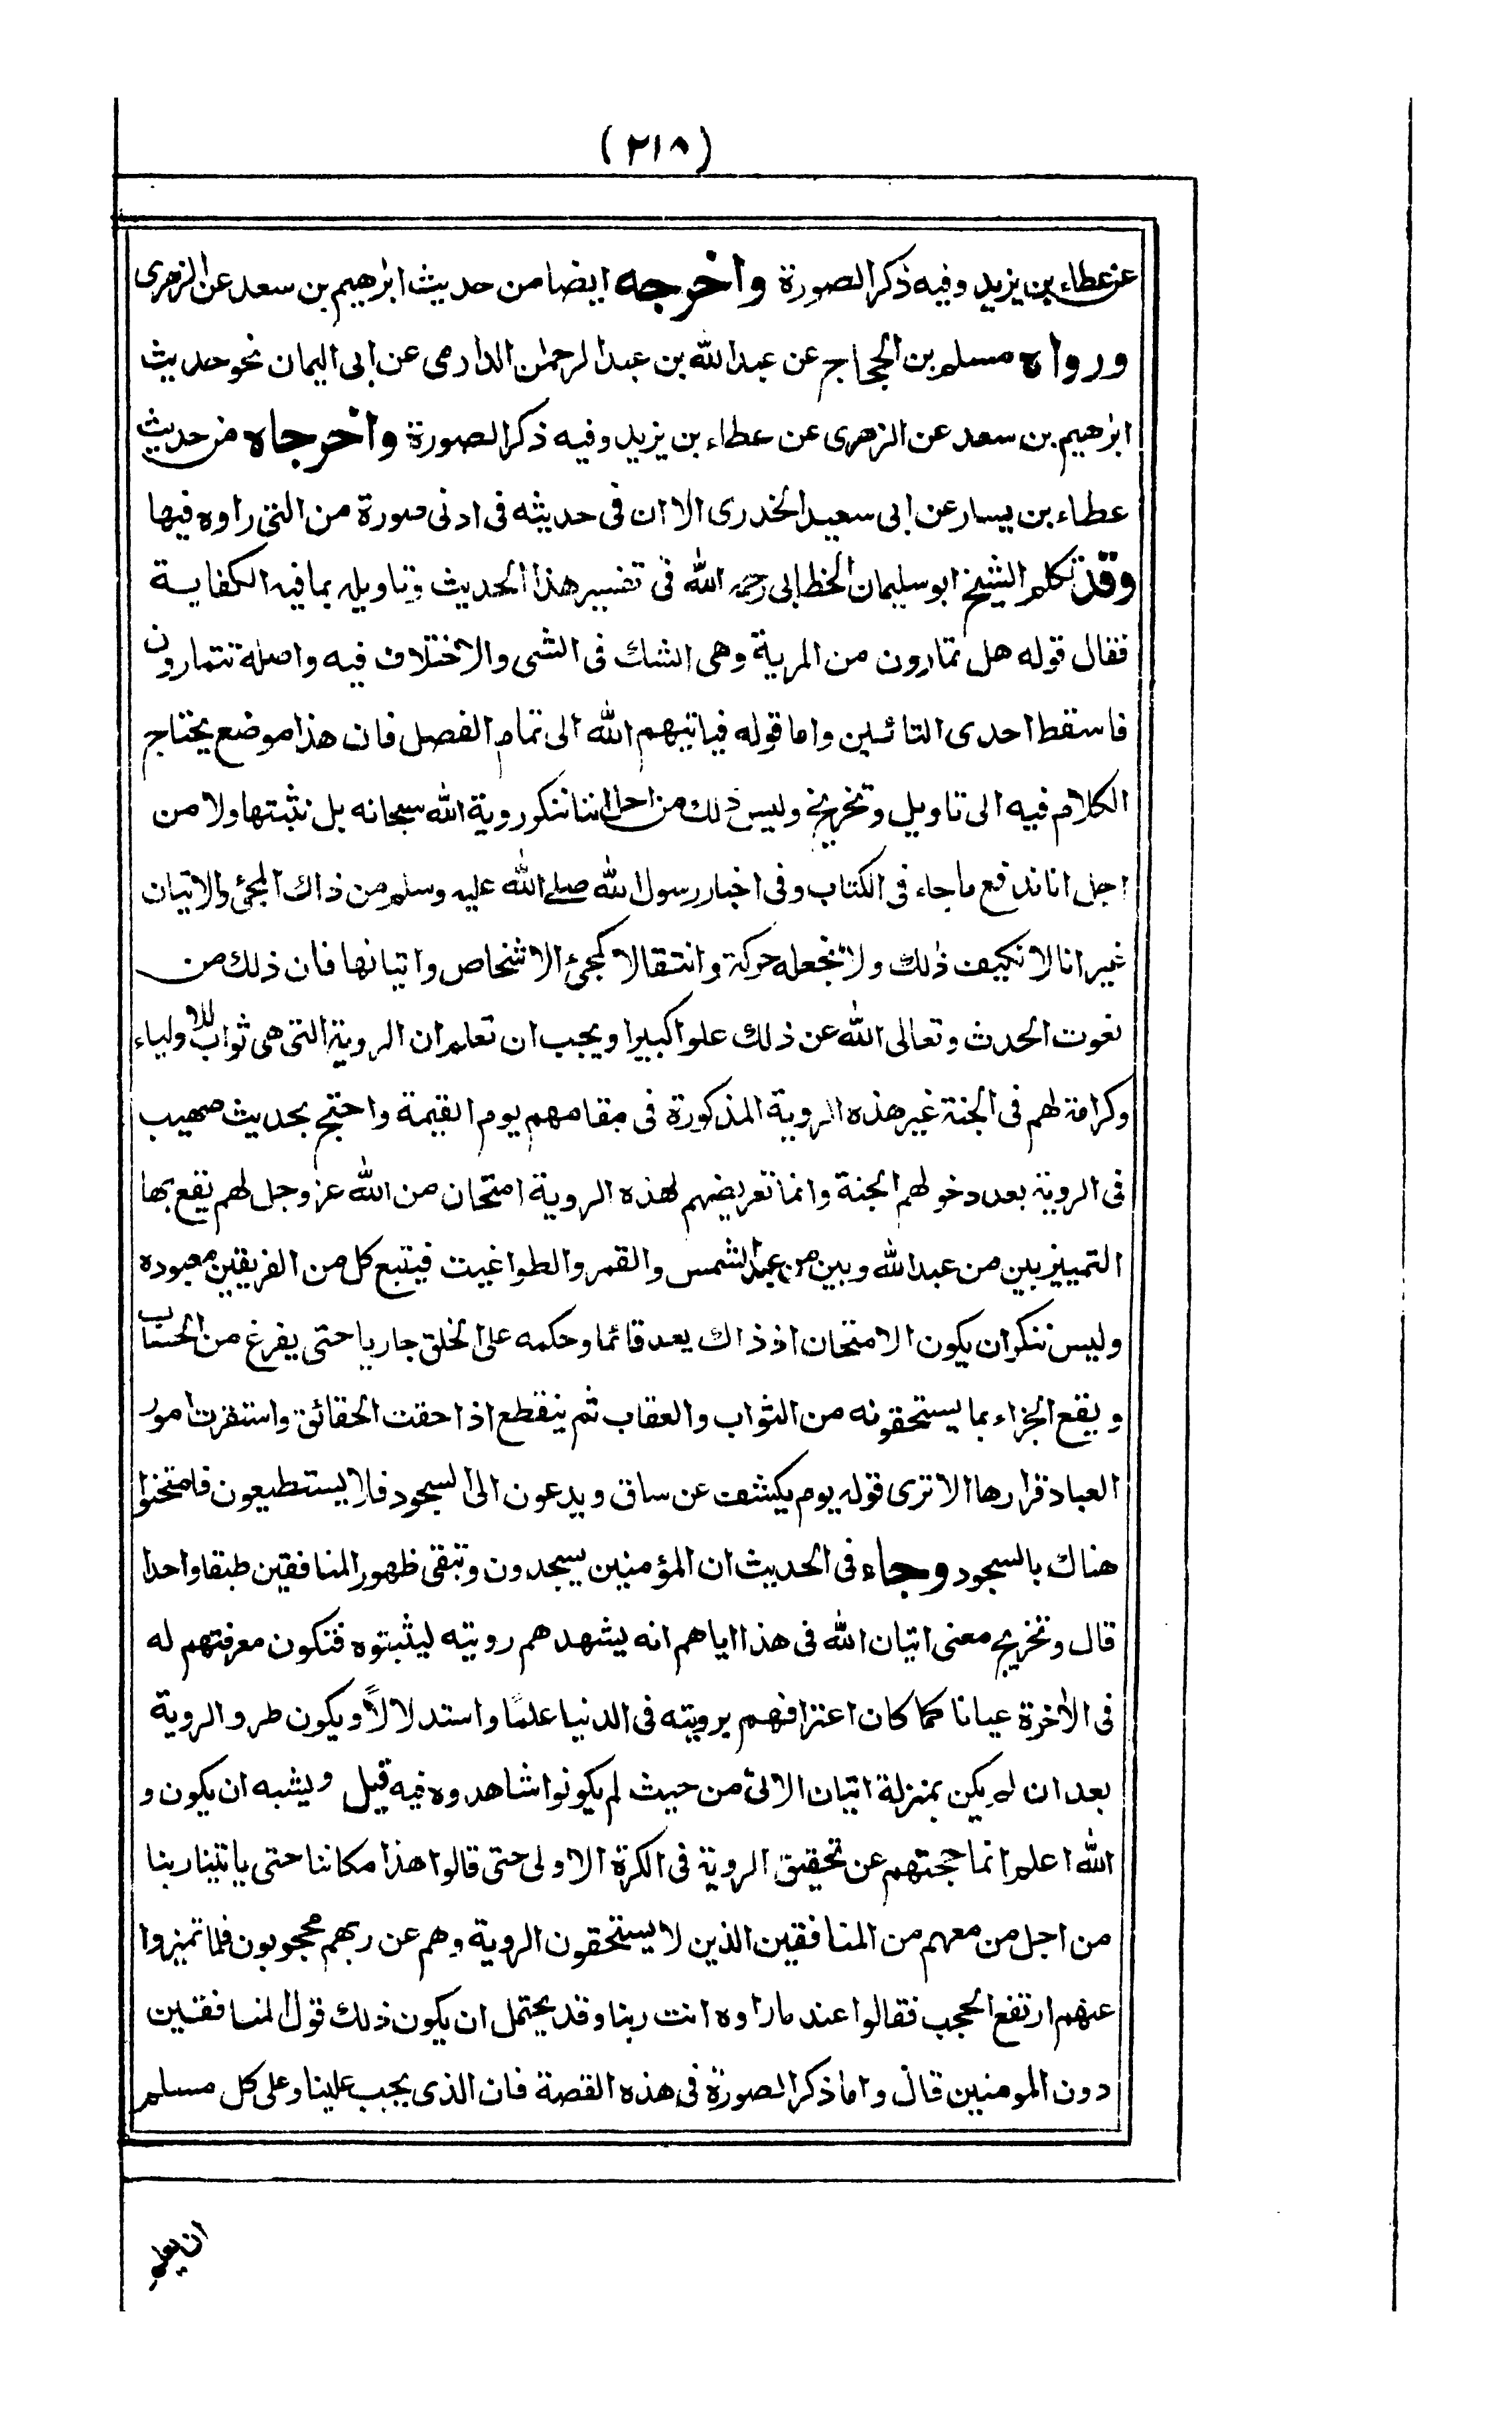 (٢١٨)
عن عطاء بن يزيد وفيه ذكر الصورة واخرجه ايضا من حديث ابرهيم بن سعد عن الزهرى
ورواه مسلم بن الحجاج عن عبد الله بن عبد الرحمن الدارمى عن ابى اليمان نحو حديث
ابرهيم بن سعد عن الزهرى عن عطاء بن يزيد وفيه ذكر الصورة واخرجاه من حديث
عطاء بن يسار عن ابى سعيد الخدرى الا ان فى حديثه فى ادنى صورة من التى راوه فيها
وقد تكلم الشيخ ابو سليمان الخطابى رحمه الله فى تفسير هذا الحديث وتاويله بما فيه الكفاية
فقال قوله هل تمارون من المرية وهى الشك فى الشى والاختلاف فيه واصله تتمارون
فاسقط احدى التائين واما قوله فياتيهم الله الى تمام الفصل فان هذا موضع يحتاج
الكلام فيه الى تاويل وتخريج وليس ذلك من اجل اننا ننكر روية الله سبحانه بل نثبتها ولا من
اجل انا ندفع ما جاء فى الكتاب وفى اخبار رسول الله صلى الله عليه وسلم من ذاك المجئ والاتيان
غير انا لا نكيف ذلك ولا نجعله حركة وانتقالا كمجئ الاشخاص واتيانها فان ذلك من
نعوت الحدث وتعالى الله عن ذلك علوا كبيرا ويجب ان تعلم ان الروية التى هى ثواب للاولياء
وكرامة لهم فى الجنة غير هذه الروية المذكورة فى مقامهم يوم القيمة واحتج بحديث صهيب
فى الروية بعد دخولهم الجنة وانما تعريضهم لهذه الروية امتحان من الله عز وجل لهم يقع بها
التمييز بين من عبد الله وبين من عبد الشمس والقمر والطواغيت فيتبع كل من الفريقين معبوده
وليس ننكر ان يكون الامتحان اذ ذاك يعد قائما وحكمه على الخلق جاريا حتى يفرغ من الحساب
ويقع الجزاء بما يستحقونه من الثواب والعقاب ثم ينقطع اذا حقت الحقائق واستقرت امور
العباد قرارها الا ترى قوله يوم يكشف عن ساق ويدعون الى السجود فلا يستطيعون فامتحنوا
هناك بالسجود وجاء فى الحديث ان المؤمنين يسجدون وتبقى ظهور المنافقين طبقا واحدا
قال وتخريج معنى اتيان الله فى هذا اياهم انه يشهدهم رويته ليثبتوه فتكون معرفتهم له
فى الاخرة عيانا كما كان اعترافهم برويته فى الدنيا علمًا واستدلالاً ويكون طرو الروية
بعد ان لم يكن بمنزلة اتيان الاتى من حيث لم يكونوا شاهدوه فيه قبل ويشبه ان يكون و
الله اعلم انما حجتهم عن تحقيق الروية فى الكرة الاولى حتى قالوا هذا مكاننا حتى ياتينا ربنا
من اجل من معهم من المنافقين الذين لا يستحقون الروية وهم عن ربهم محجوبون فلما تميزوا
عنهم ارتفع الحجب فقالوا عند ما راوه انت ربنا وقد يحتمل ان يكون ذلك قول المنافقين
دون المومنين قال واما ذكر الصورة فى هذه القصة فان الذى يجب علينا وعلى كل مسلم
ان يعلم